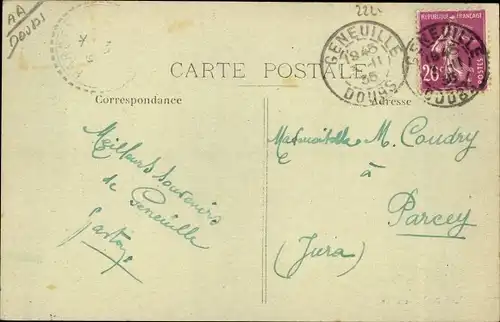 AA
DOUBS
222
GENEUILLE
1945
35
DOUBS
GENEUILLE
DOUBS
REPUBLIQUE FRANÇAISE
20c
POSTES
CARTE POSTALE
Correspondance
Adresse
Meilleurs souvenirs
de Geneuille
Gaston
Mademoiselle M. Coudry
à
Parcey
(Jura)